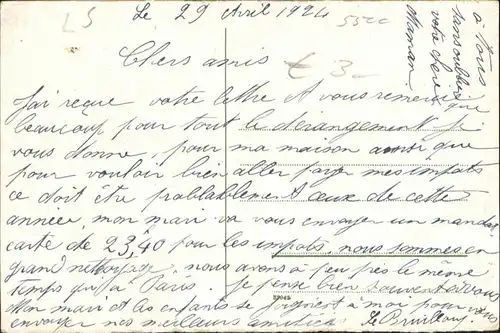 LS
Le 29 Avril 1924
55cc
Chers amis
€ 3-
J'ai reçue votre lettre et vous remercie
beaucoup pour tout le dérangement que je
vous donne pour ma maison ainsi que
pour vouloir bien aller payer mes impots
ce doit être problablement ceux de cette
année, mon mari va vous envoyer un mandat
carte de 23,40 pour les impots, nous sommes en
grand nettoyage, nous avons à peu près le même
temps qu'à Paris. Je pense bien souvent à vous
Mon mari et les enfants se joignent à moi pour vous
envoyer nos meilleurs amitiés
à tous
sans oublier
votre chère
Maman